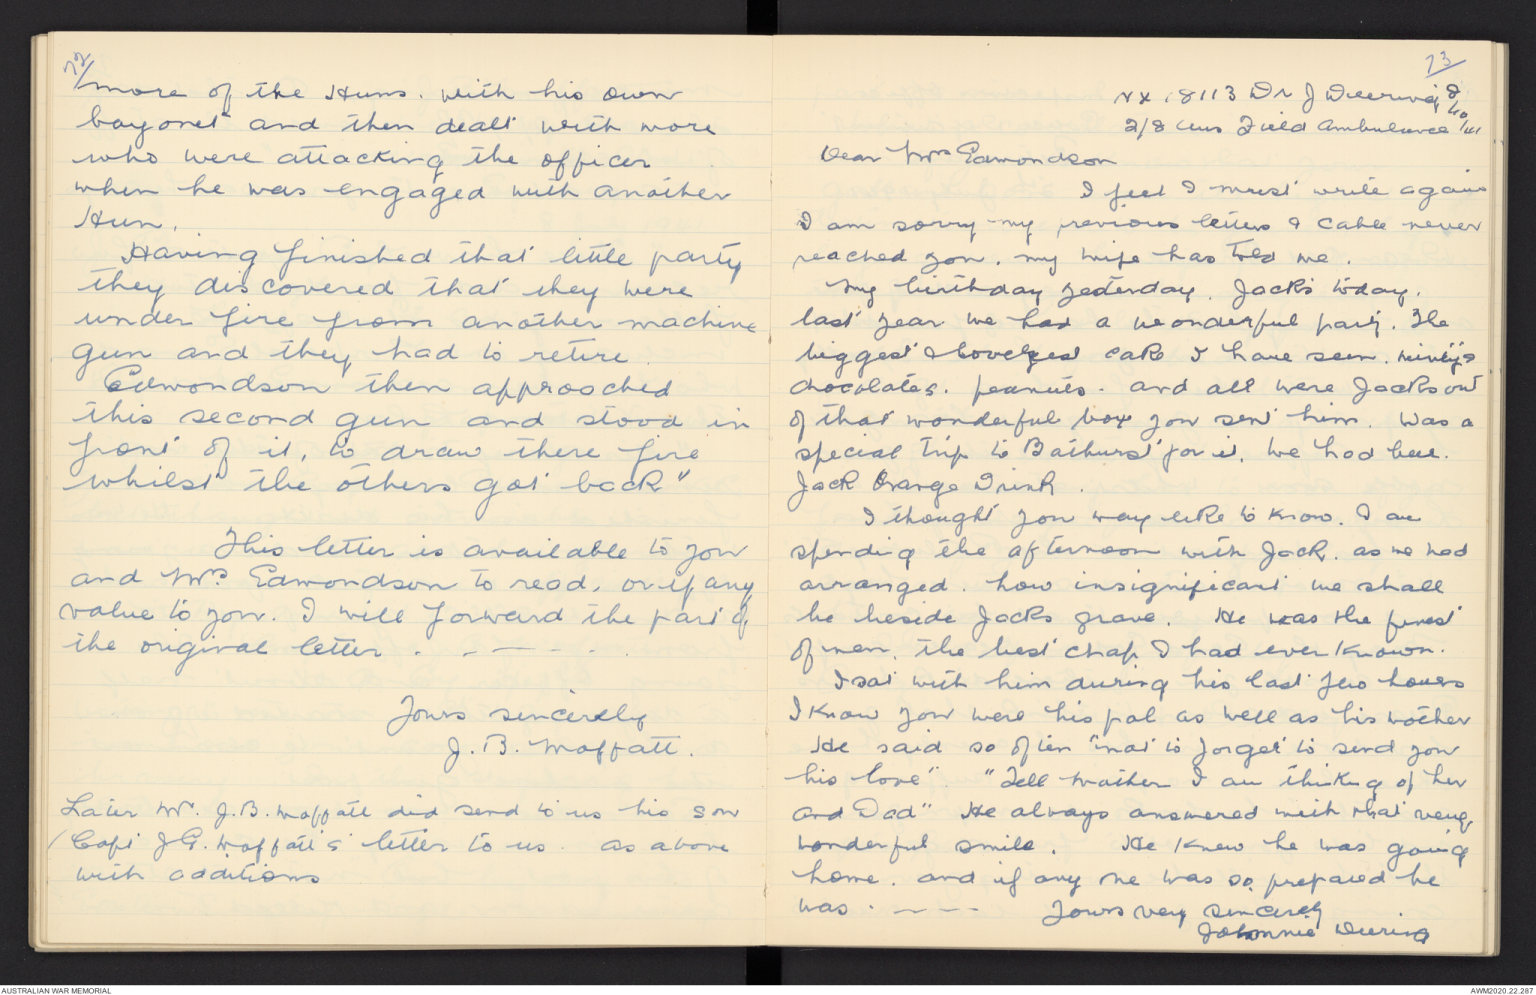 72/
more of the Huns. with his own
bayonet and then dealt with more
who were attacking the officer
when he was engaged with another
Hun.
Having finished that little party
they discovered that they were
under fire from another machine
gun and they had to retire.
Edmondson then approached
this second gun and stood in
front of it, to draw there fire
whilst the others got back"
This letter is available to you
and Mrs Edmondson to read, or if any
value to you. I will forward the part of
the original letter . - - - - .
Yours sincerely
J. B. Moffatt.
Later Mr. J.B. Moffatt did send to us his son
/Capt J G. Moffatt's letter to us. as above
with additions
73
NX 18113 Dr J Deering 8/10/41
2/8 Aus Field Ambulance
Dear Mrs Edmondson
I feel I must write again
I am sorry my previous letters & cable never
reached you. my wife has told me.
My birthday yesterday. Jack's today.
last year we had a wonderful party. The
biggest & loveliest cake I have seen. minties
chocolates. peanuts. and all were Jacks out
of that wonderful box you sent him. Was a
special trip to Bathurst for it. We had beer.
Jack Orange Drink.
I thought you may like to know. I am
spending the afternoon with Jack. as we had
arranged. how insignificant we shall
be beside Jacks grave. He was the finest
of men. the best chap I had ever known.
I sat with him during his last few hours
I know you were his pal as well as his mother
He said so often "not to forget to send you
his love". "Tell Mother I am thinking of her
and Dad" He always answered with that very
wonderful smile. He knew he was going
home. and if any one was so prepared he
was . - - - - Yours very sincerely
Johnnie Deering
AUSTRALIAN WAR MEMORIAL
AWM2020.22.287